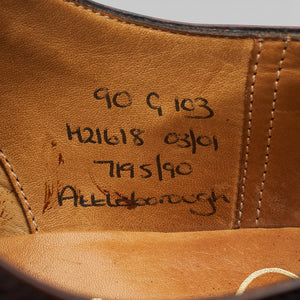 90 G 103
M21618 03/01
7195/90
Attleborough